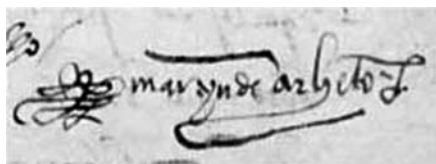 martyn de arheto